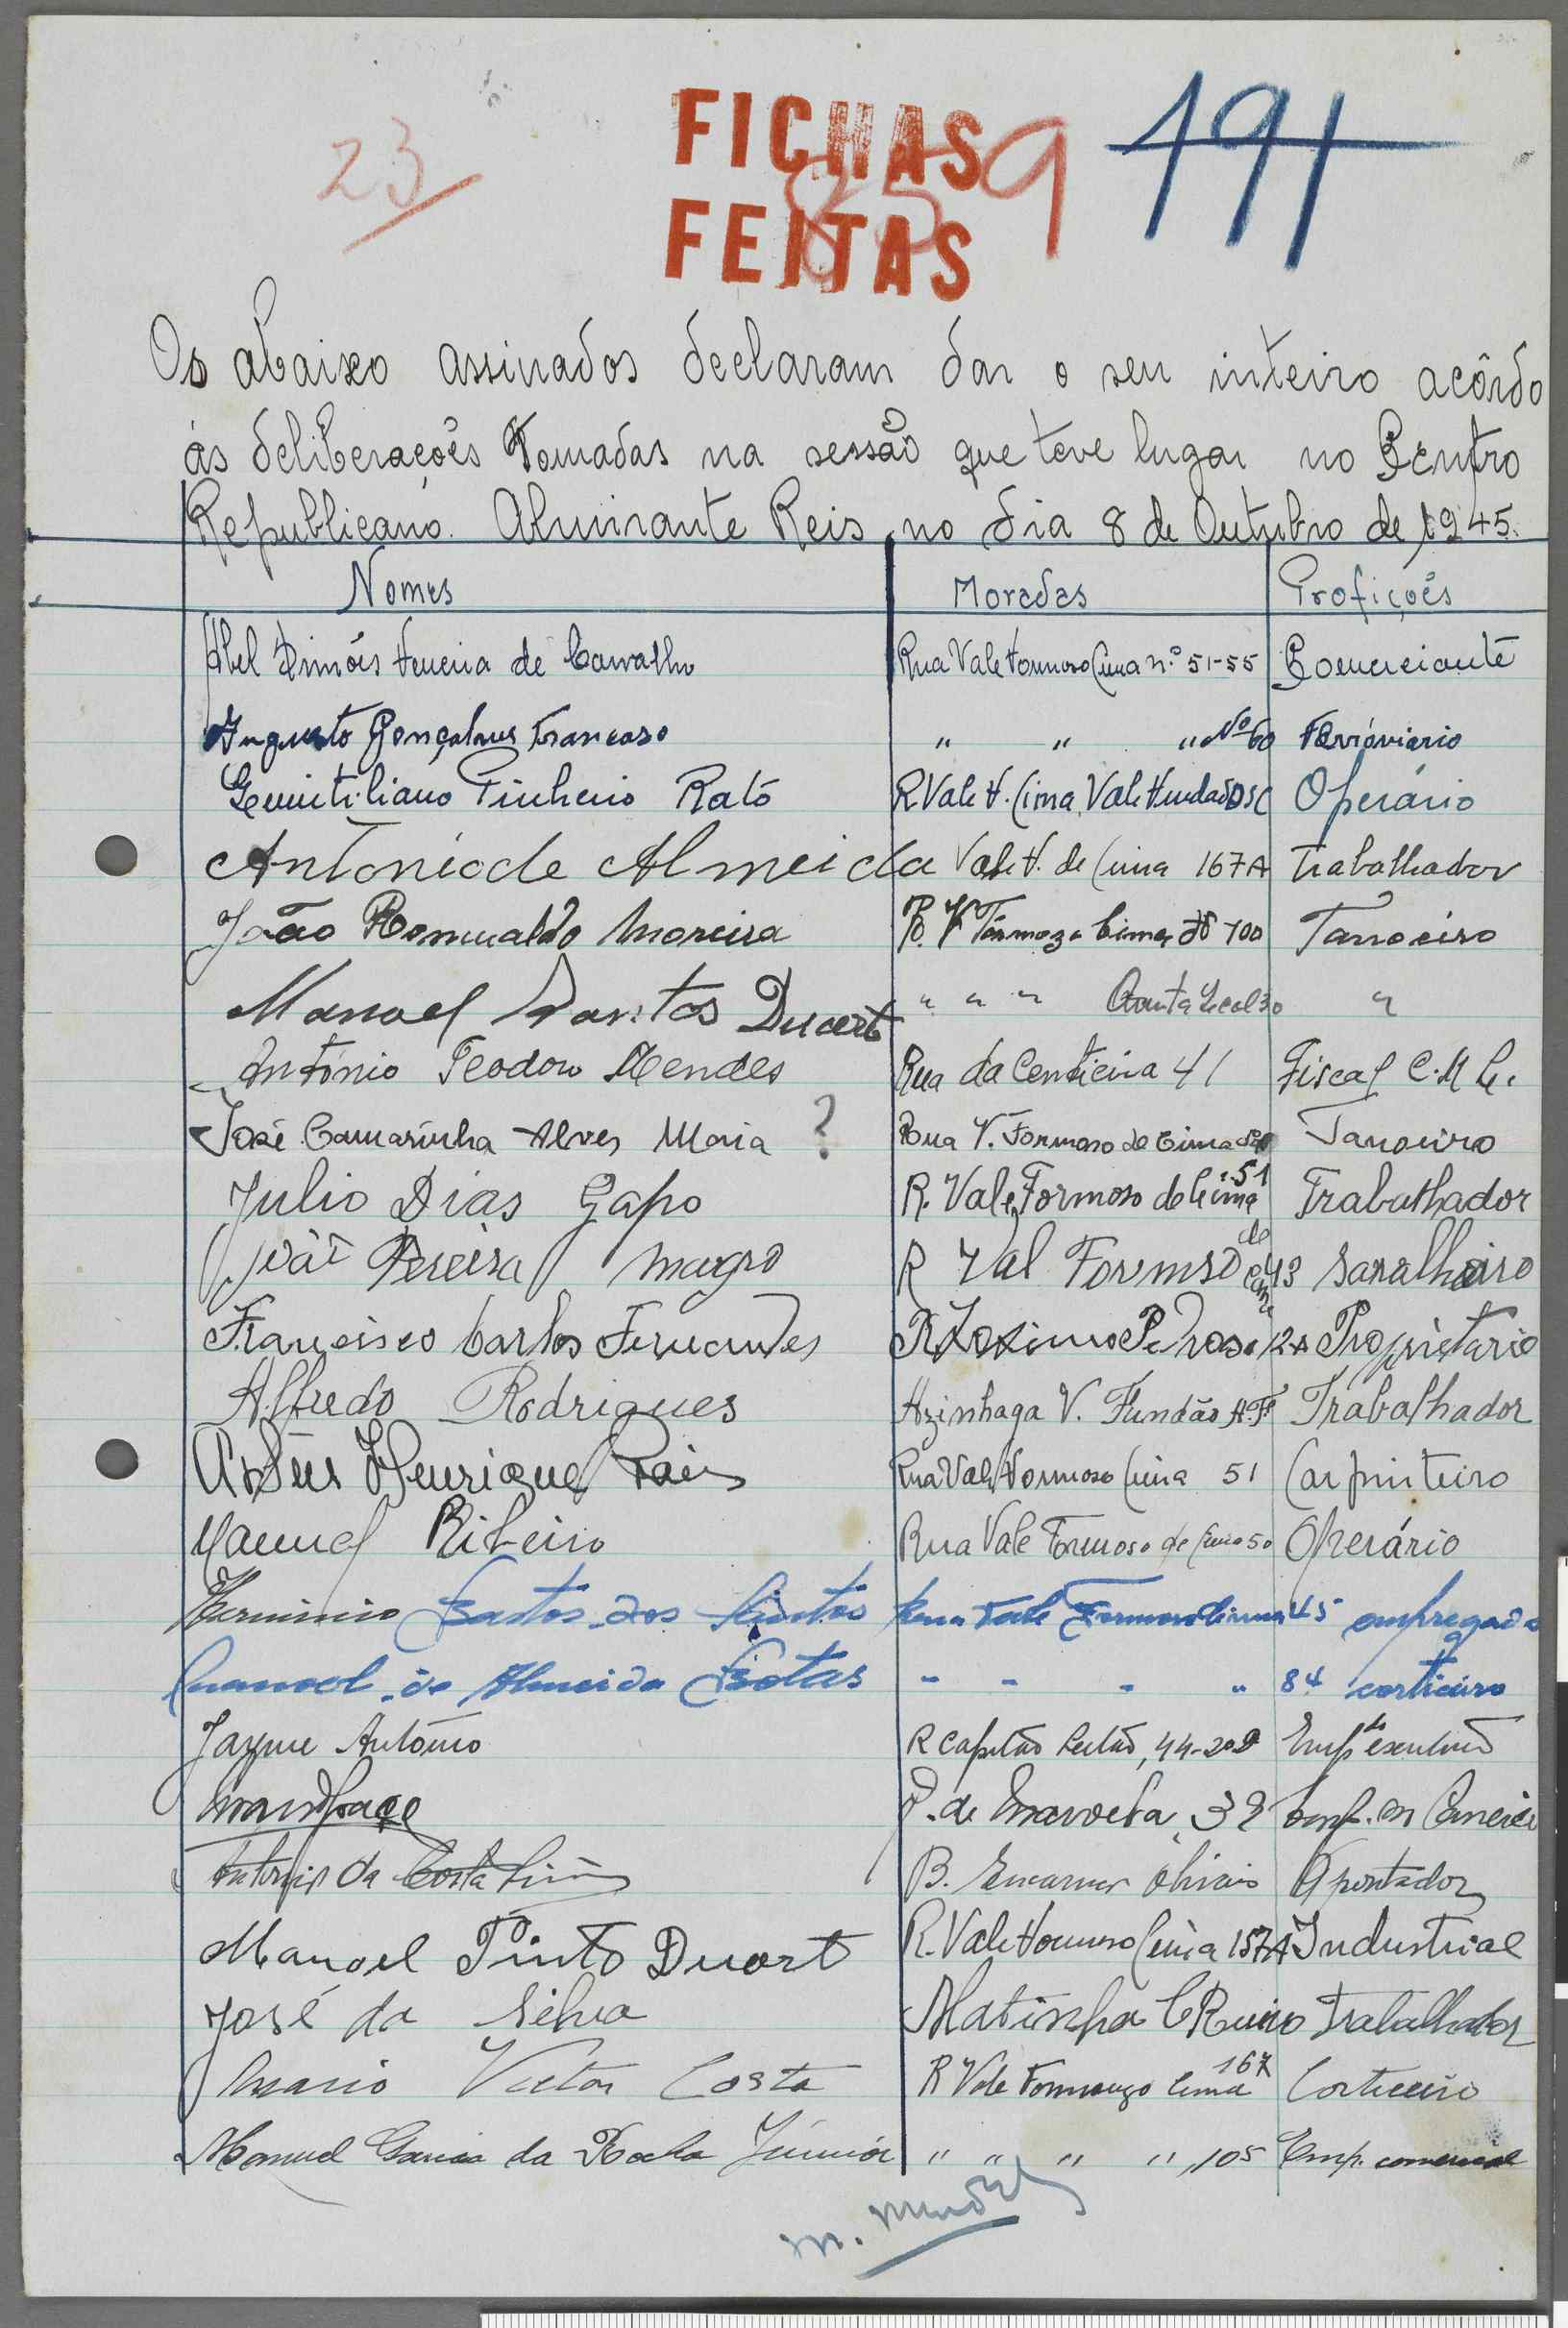 23
FICHAS
FEITAS
859
191
Os abaixo assinados declaram dar o seu inteiro acôrdo
ás deliberações tomadas na sessão que teve lugar no Centro
Republicano Almirante Reis, no dia 8 de Outubro de 1945.
Nomes Moradas Profições
Abel Simóis Ferreira de Carvalho Rua Vale Formoso Cima n.º 51-55 Comerciante
Augusto Gonçalves Trancoso " " " Nº 60 Ferróviario
Pinheiro Rató R Vale F. Cima Vale Operário
António de Almeida Vale F. de Cima 167A Trabalhador
João Romualdo Moreira R. V Formozo Cima Nº 100 Tanoeiro
Manoel Santos Duart " " " "
António Teodoro Mendes Rua da Centieira 41 Fiscal C.M.L.
José Camarinha Alves Maria ? Rua V. Formoso de Cima Tanoeiro
Julio Dias Gapo R. Vale Formoso de Cima 51 Trabalhador
João Pereira Magro R Val Formoso de Cima 43 Saralheiro
Francisco Carlos Fernandes R Zozimo Pedroso 12A Proprietario
Alfredo Rodrigues Azinhaga V. Fundão A.F. Trabalhador
Henrique Pais Rua Vale Formoso Cima 51 Carpinteiro
Manuel Ribeiro Rua Vale Formoso de Cima 50 Operário
Herminio Bastos dos Santos Rua Vale Formoso Cima 45 empregado
Manoel de Almeida Botas " " " " 84 corticeiro
Jayme António R Capitão Leitão, 44-2º D Emp
R. de Marvila, 32 Emp.
António da Costa B. Encarnação Olivais Apontador
Manoel Pinto Duart R. Vale Formoso Cima 157A Industrial
José da Silva Matinha Trabalhador
Mario Victor Costa R Vale Formozo Cima 167 Corticeiro
Manuel Garcia da Rocha Júnior " " " ", 105 Emp. comercial
M.